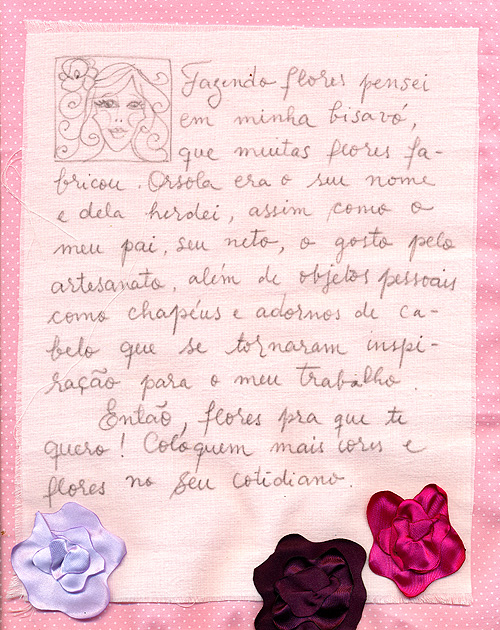 Fazendo flores pensei
em minha bisavó,
que muitas flores fa-
bricou. Orsola era o seu nome
e dela herdei, assim como o
meu pai, seu neto, o gosto pelo
artesanato, além de objetos pessoais
como chapéus e adornos de ca-
belo que se tornaram inspi-
ração para o meu trabalho.
Então, flores pra que te
quero! Coloquem mais cores e
flores no seu cotidiano.